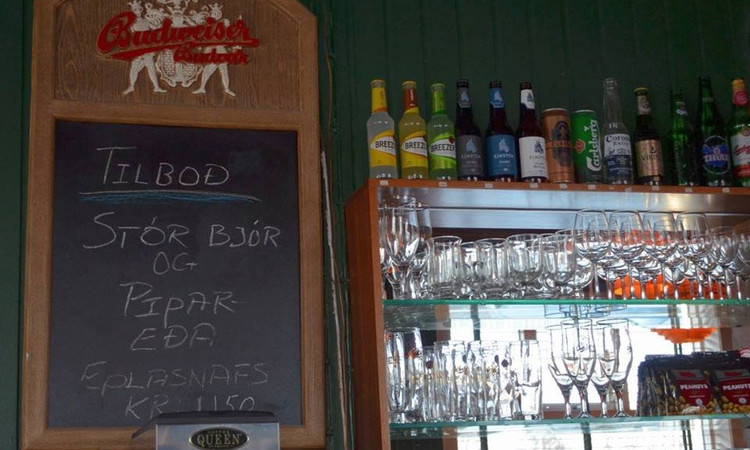 Budweiser
Budvar
TILBOÐ
STÓR BJÓR
OG
PIPAR-
EÐA
EPLASNAFS
KR. 1150
QUEEN
BREEZER
BREEZER
BREEZER
EINSTÖK
EINSTÖK
Carlsberg
Corona
THULE
PEANUTS
PEANUTS